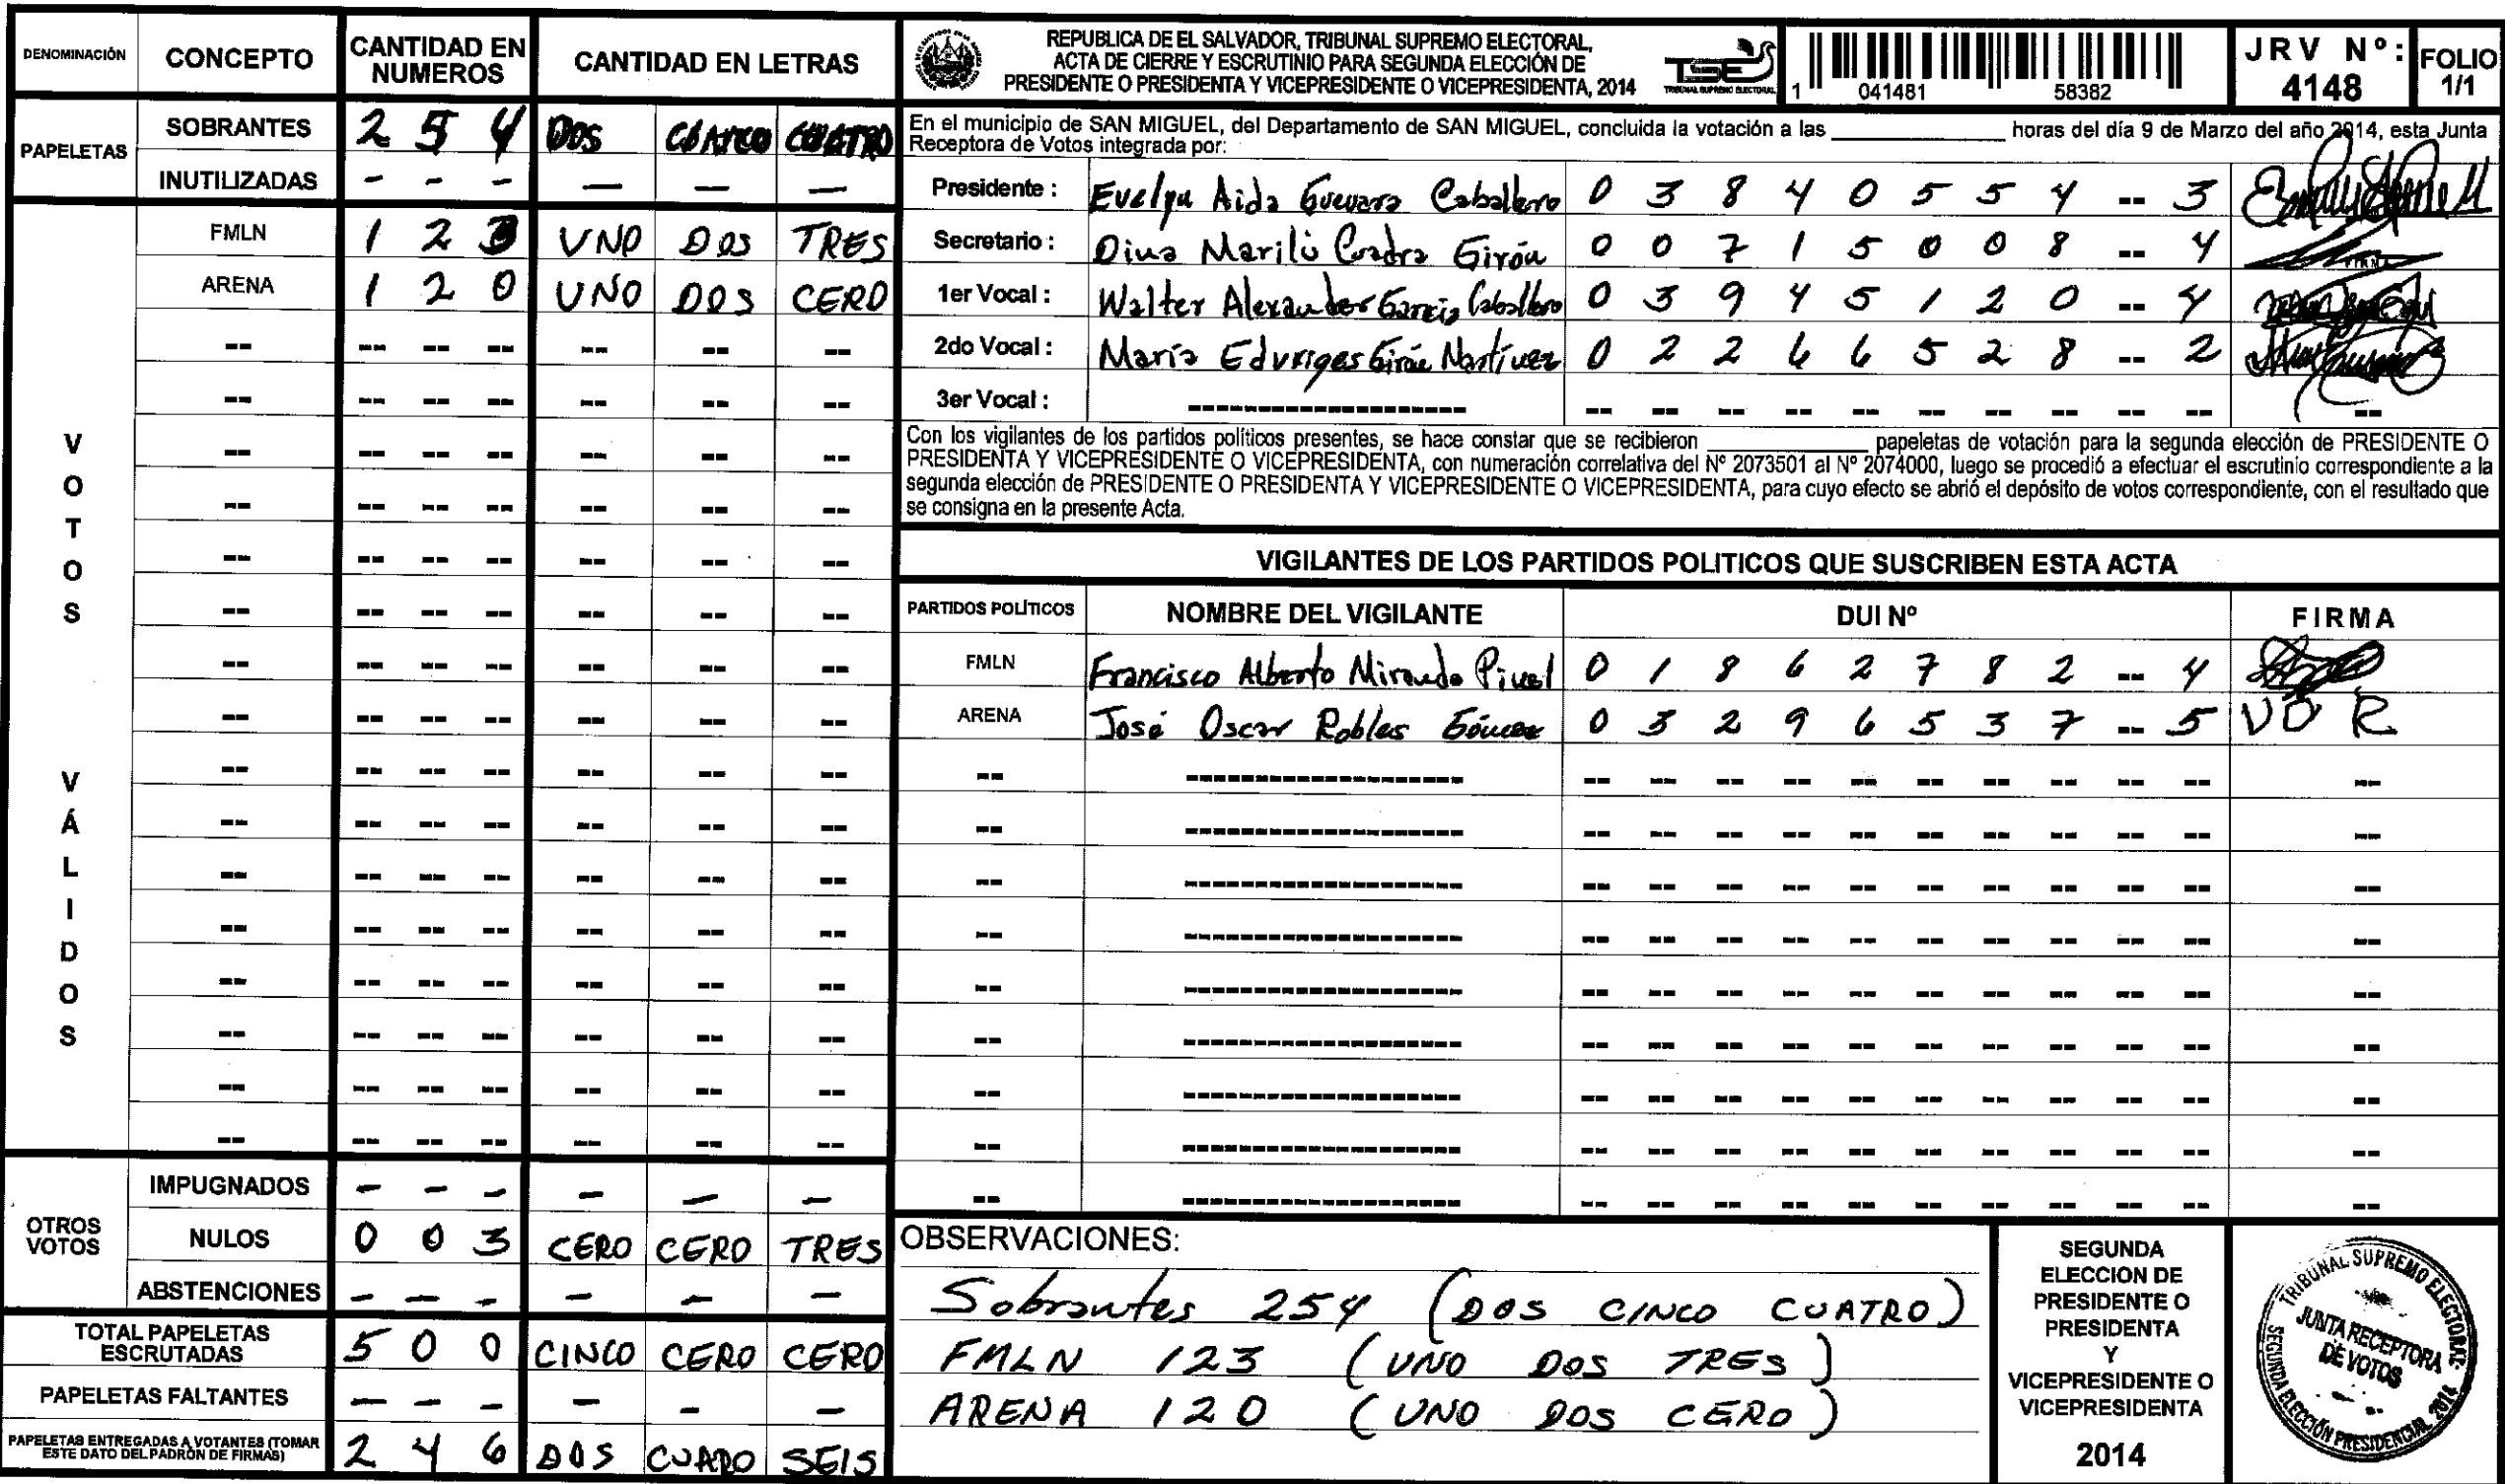 DENOMINACIÓN CONCEPTO CANTIDAD EN NUMEROS CANTIDAD EN LETRAS
PAPELETAS
SOBRANTES 2 5 4 DOS CINCO CUATRO
INUTILIZADAS - - - — — —
VOTOS VÁLIDOS
FMLN 1 2 3 UNO DOS TRES
ARENA 1 2 0 UNO DOS CERO
OTROS VOTOS
IMPUGNADOS - - - - - -
NULOS 0 0 3 CERO CERO TRES
ABSTENCIONES - - - - - -
TOTAL PAPELETAS ESCRUTADAS 5 0 0 CINCO CERO CERO
PAPELETAS FALTANTES - - - - - -
PAPELETAS ENTREGADAS A VOTANTES (TOMAR ESTE DATO DEL PADRÓN DE FIRMAS) 2 4 6 DOS CUARO SEIS
REPUBLICA DE EL SALVADOR, TRIBUNAL SUPREMO ELECTORAL,
ACTA DE CIERRE Y ESCRUTINIO PARA SEGUNDA ELECCIÓN DE
PRESIDENTE O PRESIDENTA Y VICEPRESIDENTE O VICEPRESIDENTA, 2014
TSE
TRIBUNAL SUPREMO ELECTORAL
1 041481 58382
JRV Nº: 4148
FOLIO 1/1
En el municipio de SAN MIGUEL, del Departamento de SAN MIGUEL, concluida la votación a las ____ horas del día 9 de Marzo del año 2014, esta Junta
Receptora de Votos integrada por:
Presidente : Evelyn Aida Guevara Caballero 0 3 8 4 0 5 5 4 -- 3
Secretario : Dina Marilú Cuadra Girón 0 0 7 1 5 0 0 8 -- 4
1er Vocal : Walter Alexander García Caballero 0 3 9 4 5 1 2 0 -- 4
2do Vocal : María Eduviges Girón Martínez 0 2 2 6 6 5 2 8 -- 2
3er Vocal : ------------------
Con los vigilantes de los partidos políticos presentes, se hace constar que se recibieron ____ papeletas de votación para la segunda elección de PRESIDENTE O
PRESIDENTA Y VICEPRESIDENTE O VICEPRESIDENTA, con numeración correlativa del Nº 2073501 al Nº 2074000, luego se procedió a efectuar el escrutinio correspondiente a la
segunda elección de PRESIDENTE O PRESIDENTA Y VICEPRESIDENTE O VICEPRESIDENTA, para cuyo efecto se abrió el depósito de votos correspondiente, con el resultado que
se consigna en la presente Acta.
VIGILANTES DE LOS PARTIDOS POLITICOS QUE SUSCRIBEN ESTA ACTA
PARTIDOS POLÍTICOS NOMBRE DEL VIGILANTE DUI Nº FIRMA
FMLN Francisco Alberto Miranda 0 1 8 6 2 7 8 2 -- 4
ARENA José Oscar Robles Gómez 0 3 2 9 6 5 3 7 -- 5 VO R
OBSERVACIONES:
Sobrantes 254 (DOS CINCO CUATRO)
FMLN 123 (UNO DOS TRES)
ARENA 120 (UNO DOS CERO)
SEGUNDA
ELECCION DE
PRESIDENTE O
PRESIDENTA
Y
VICEPRESIDENTE O
VICEPRESIDENTA
2014
TRIBUNAL SUPREMO ELECTORAL
JUNTA RECEPTORA
DE VOTOS
SEGUNDA ELECCIÓN PRESIDENCIAL 2014